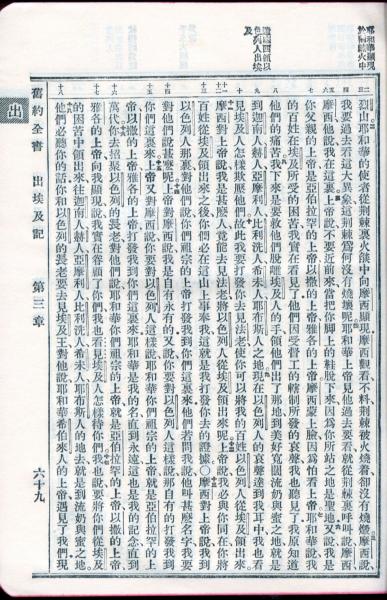 耶和華顯現
於荊棘火中
遣摩西領以
色列人出埃
及
二三
烈山耶和華的使者從荊棘裏火燄中向摩西顯現摩西觀看不料荊棘被火燒着卻沒有燒燬摩西說、
四
我要過去看這大異象這荊棘爲何沒有燒燬呢耶和華上帝見他過去要看就從荊棘裏呼叫說摩西、
五六
摩西他說我在這裏上帝說不要近前來當把你脚上的鞋脫下來因爲你所站之地是聖地又說我是
七
你父親的上帝是亞伯拉罕的上帝以撒的上帝雅各的上帝摩西蒙上臉因爲怕看上帝耶和華說我
的百姓在埃及所受的困苦我實在看見了他們因受督工的轄制所發的哀聲我也聽見了我原知道
八
他們的痛苦我下來是要救他們脫離埃及人的手領他們出了那地到美好寬闊流奶與蜜之地就是
九
到迦南人赫人、亞摩利人、比利洗人、希未人、耶布斯人之地現在以色列人的哀聲達到我耳中我也看
十
見埃及人怎樣欺壓他們故此我要打發你去見法老使你可以將我的百姓以色列人從埃及領出來
十一十二
摩西對上帝說我是甚麽人竟能去見法老將以色列人從埃及領出來呢上帝說我必與你同在你將
十三
百姓從埃及領出來之後你們必在這山上事奉我這就是我打發你去的證據○摩西對上帝說我到
以色列人那裏對他們說你們祖宗的上帝打發我到你們這裏來他們若問我說他叫甚麽名字我要
十四
對他們說甚麽呢上帝對摩西說我是自有永有的又說你要對以色列人這樣說那自有的打發我到
十五
你們這裏來上帝又對摩西說你要對以色列人這樣說耶和華你們祖宗的上帝就是亞伯拉罕的上
帝以撒的上帝雅各的上帝打發我到你們這裏來耶和華是我的名直到永遠這也是我的記念直到
十六
萬代你去招聚以色列的長老對他們說耶和華你們祖宗的上帝就是亞伯拉罕的上帝以撒的上帝
十七
雅各的上帝向我顯現說我實在眷顧了你們我也看見埃及人怎樣待你們我也說要將你們從埃及
的困苦中領出來往迦南人赫人、亞摩利人、比利洗人、希未人、耶布斯人的地去就是到流奶與蜜之地
十八
他們必聽你的話你和以色列的長老要去見埃及王對他說耶和華希伯來人的上帝遇見了我們現
舊約全書 出埃及記 第三章 六十九
出